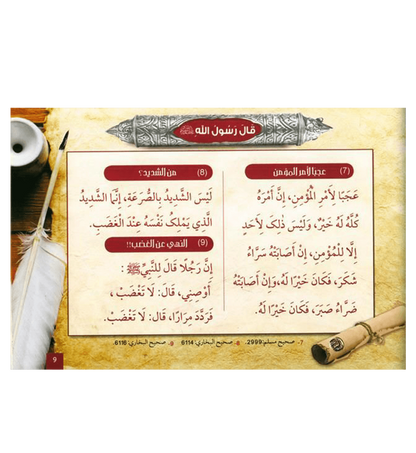 قَالَ رَسُولُ اللَّه ﷺ
(7) عجبًا لأمر المؤمن
عَجَبًا لِأَمْرِ الْمُؤْمِنِ، إِنَّ أَمْرَهُ
كُلَّهُ لَهُ خَيْرٌ، وَلَيْسَ ذٰلِكَ لِأَحَدٍ
إِلَّا لِلْمُؤْمِنِ، إِنْ أَصَابَتْهُ سَرَّاءُ
شَكَرَ، فَكَانَ خَيْرًا لَهُ، وَإِنْ أَصَابَتْهُ
ضَرَّاءُ صَبَرَ، فَكَانَ خَيْرًا لَهُ.
(8) من الشديد؟
لَيْسَ الشَّدِيدُ بِالصُّرَعَةِ، إِنَّمَا الشَّدِيدُ
الَّذِي يَمْلِكُ نَفْسَهُ عِنْدَ الْغَضَبِ.
(9) النهي عن الغضب!!
إِنَّ رَجُلًا قَالَ لِلنَّبِيِّ ﷺ :
أَوْصِنِي، قَالَ: لَا تَغْضَبْ ،
فَرَدَّدَ مِرَارًا، قَالَ: لَا تَغْضَبْ.
7- صحيح مسلم: 2999. 8- صحيح البخاري: 6114 9- صحيح البخاري: 6116.
9